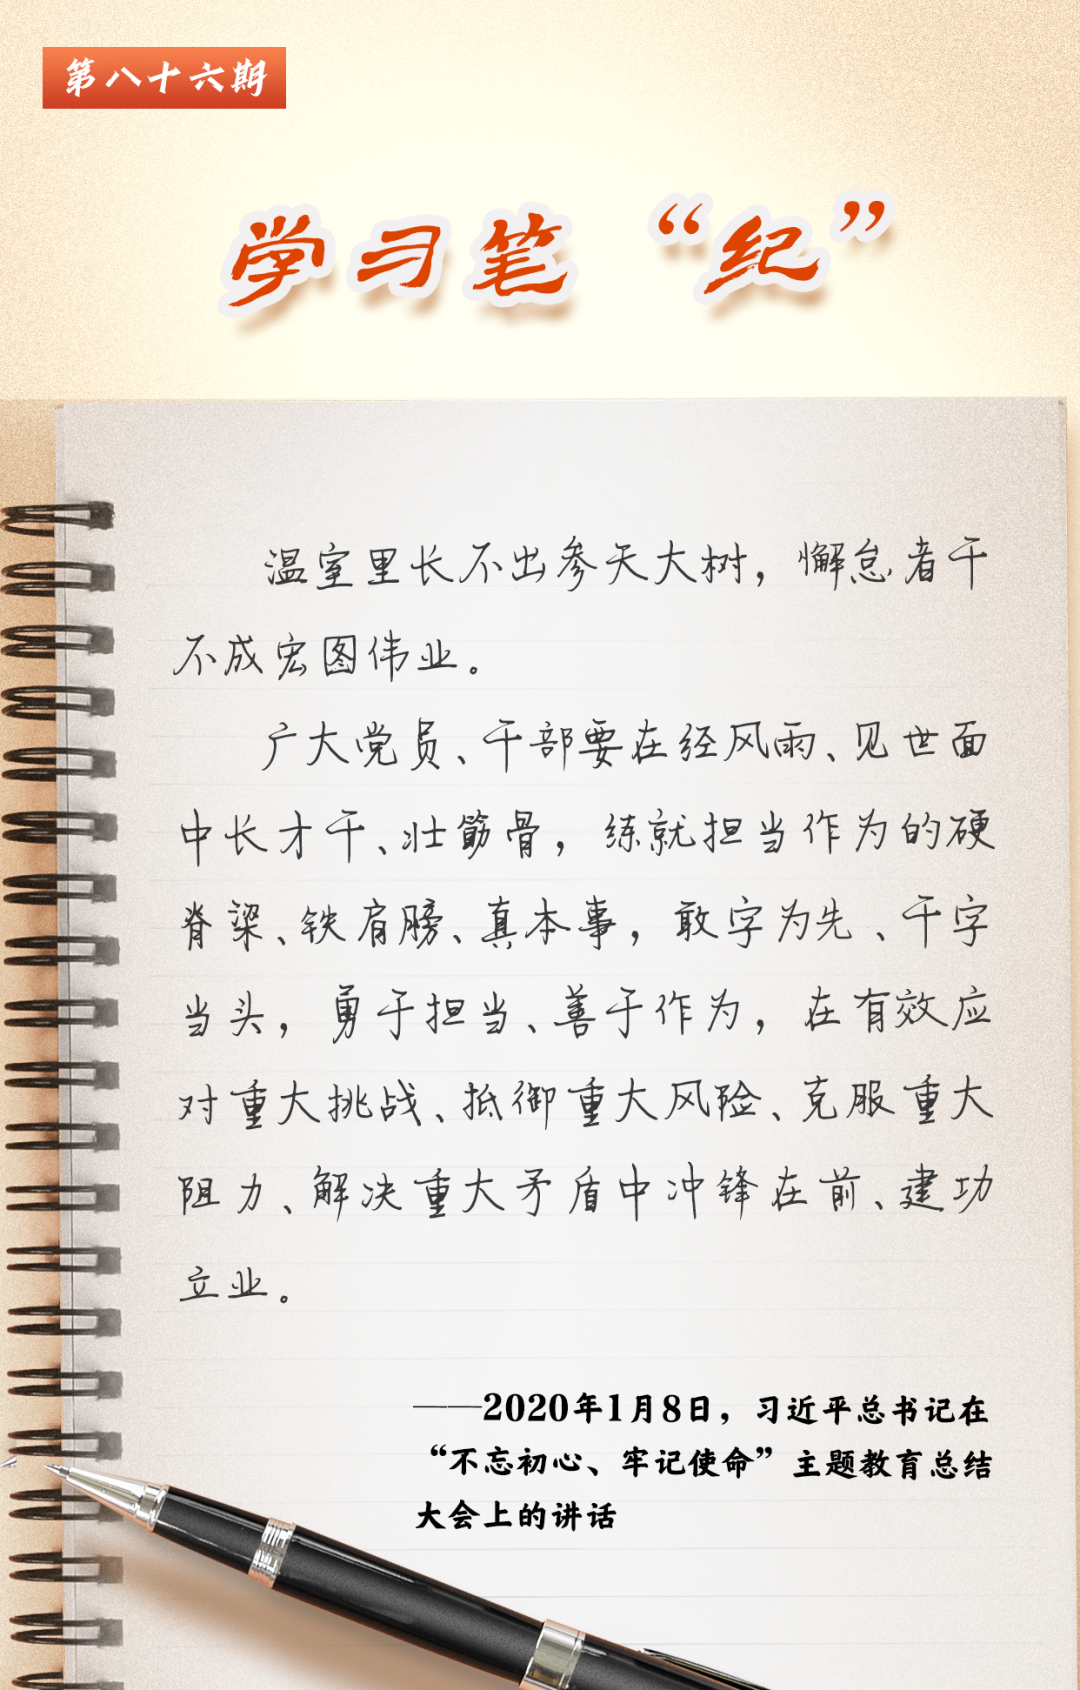 第八十六期
学习笔“纪”
温室里长不出参天大树，懈怠者干
不成宏图伟业。
广大党员、干部要在经风雨、见世面
中长才干、壮筋骨，练就担当作为的硬
脊梁、铁肩膀、真本事，敢字为先、干字
当头，勇于担当、善于作为，在有效应
对重大挑战、抵御重大风险、克服重大
阻力、解决重大矛盾中冲锋在前、建功
立业。
——2020年1月8日，习近平总书记在
“不忘初心、牢记使命”主题教育总结
大会上的讲话